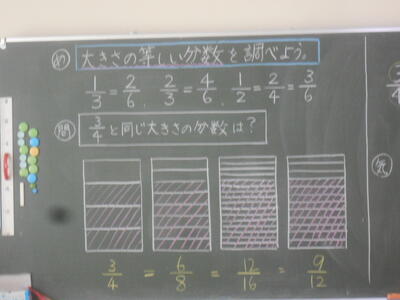 め 大きさの等しい分数を調べよう。
1/3 = 2/6 、 2/3 = 4/6 、 1/2 = 2/4 = 3/6
問 3/4 と同じ大きさの分数は？
3/4 = 6/8 = 12/16 = 9/12
気